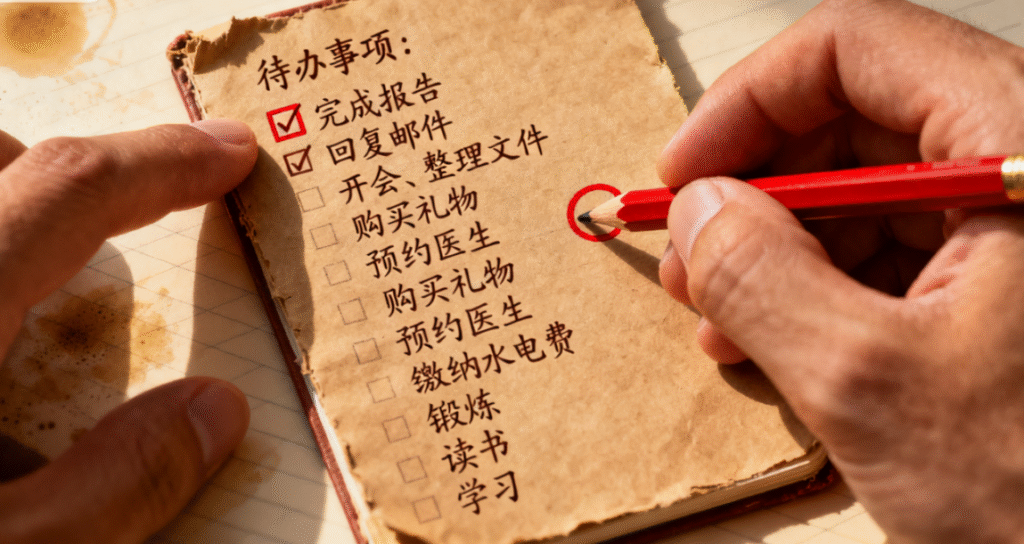 待办事项：
完成报告
回复邮件
开会、整理文件
购买礼物
预约医生
购买礼物
预约医生
缴纳水电费
锻炼
读书
学习